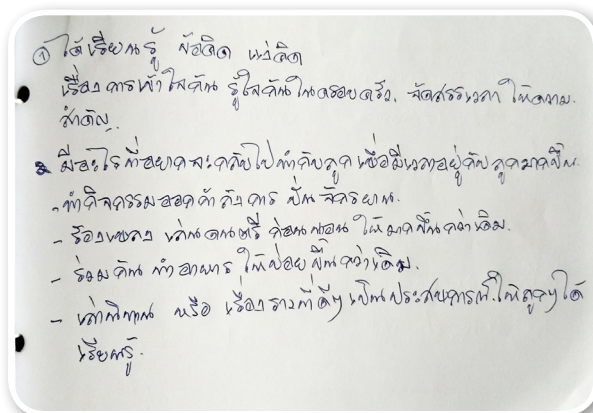 ① ได้เรียนรู้ ข้อคิด แง่คิด
เรื่องการเข้าใจกัน รู้ใจกันในครอบครัว. จัดสรรเวลา ให้ความ
สำคัญ.
2 มีอะไรที่อยากจะกลับไปทำกับลูก เพื่อมีเวลาอยู่กับลูกมากขึ้น.
- ทำกิจกรรมออกกำลังกาย ปั่นจักรยาน.
- ร้องเพลง เล่นดนตรี ก่อนนอน ให้มากขึ้นกว่าเดิม.
- ร่วมกัน ทำอาหาร ให้บ่อยขึ้นกว่าเดิม.
- เล่านิทาน หรือ เรื่องราวที่ดีๆ เป็นประสบการณ์ ให้ลูกๆ ได้
เรียนรู้.